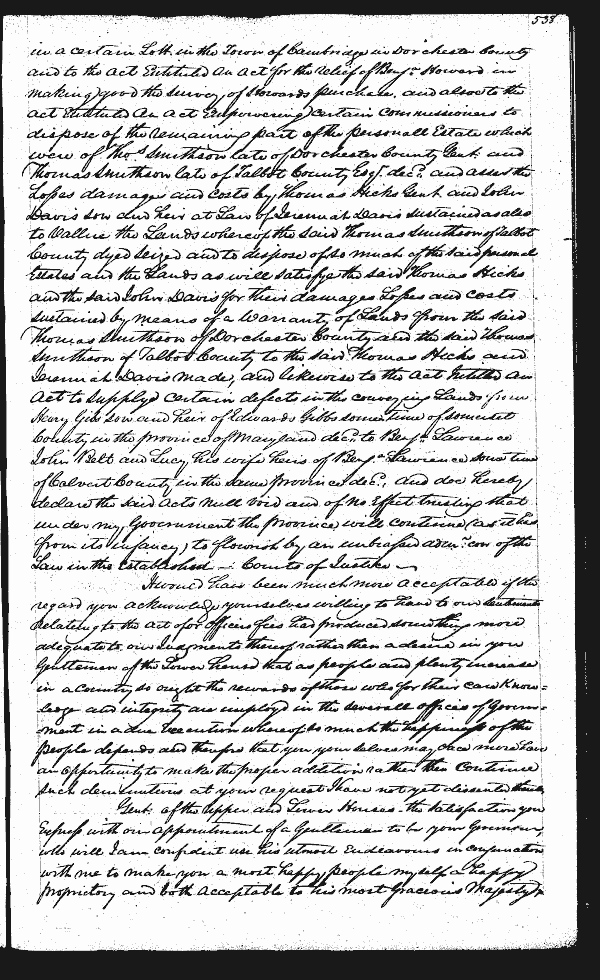 538
in a certain Lott in the Town of Cambridge in Dorchester County
and to the Act Entituled An Act for the relief of Benjn. Howard in
making good the survey of Howards purchase, and also to the
Act Entituled An Act Empowering certain Commissioners to
dispose of the remaining part of the personall Estate which
were of Thos. Smithson late of Dorchester County Gent. and
Thomas Smithson late of Talbot County Esqr. decd. and assess the
Losses damages and Costs by Thomas Hicks Gent. and John
Davis son and heir at Law of Jeremiah Davis sustained as also
to Vallue the Lands whereof the said Thomas Smithson of Talbot
County dyed seized and to dispose of so much of the said personal
Estates and the Lands as will satisfye the said Thomas Hicks
and the said John Davis for their damages Losses and costs
sustained by means of a Warranty of Lands from the said
Thomas Smithson of Dorchester County and the said Thomas
Smithson of Talbot County to the said Thomas Hicks and
Jeremiah Davis made, and likewise to the Act Intitled An
Act to supply certain defects in the conveying Lands from
Henry Gibs son and heir of Edwards Gibbs sometime of Somerset
County in the province of Maryland decd. to Benjn. Lawrence
John Belt and Lucy his wife heirs of Benjn. Lawrence some time
of Calvert County in the same province decd., and doe hereby
declare the said Acts null void and of no Effect trusting that
under my Government the province will continue (as it has
from its infancy) to flourish by an unbiassed admn.con of the
Law in the established Courts of Justice
It would have been much more acceptable if the
regard you acknowledge yourselves willing to have to our sentiments
relating to the Act for officers fees had produced something more
adequate to our Judgments thereof rather then a desire in you
Gentlemen of the Lower house that as people and plenty increase
in a Country so ought the rewards of those who for their care Know=
ledge and integrity are imployd in the severall offices of Govern=
ment in a due Execution whereof so much the happiness of the
people depends and therefore that you your selves may once more have
an opportunity to make the proper addition rather then Continue
such deminutions at your request I have not yet dissented thereto
Gent. of the Upper and Lower Houses the satisfaction you
Express with our appointment of a Gentleman to be your Governour,
who will I am confident use his utmost Endeavours in conjunction
with me to make you a most happy people myself a happy
proprietory and both Acceptable to his most Gracious Majesty